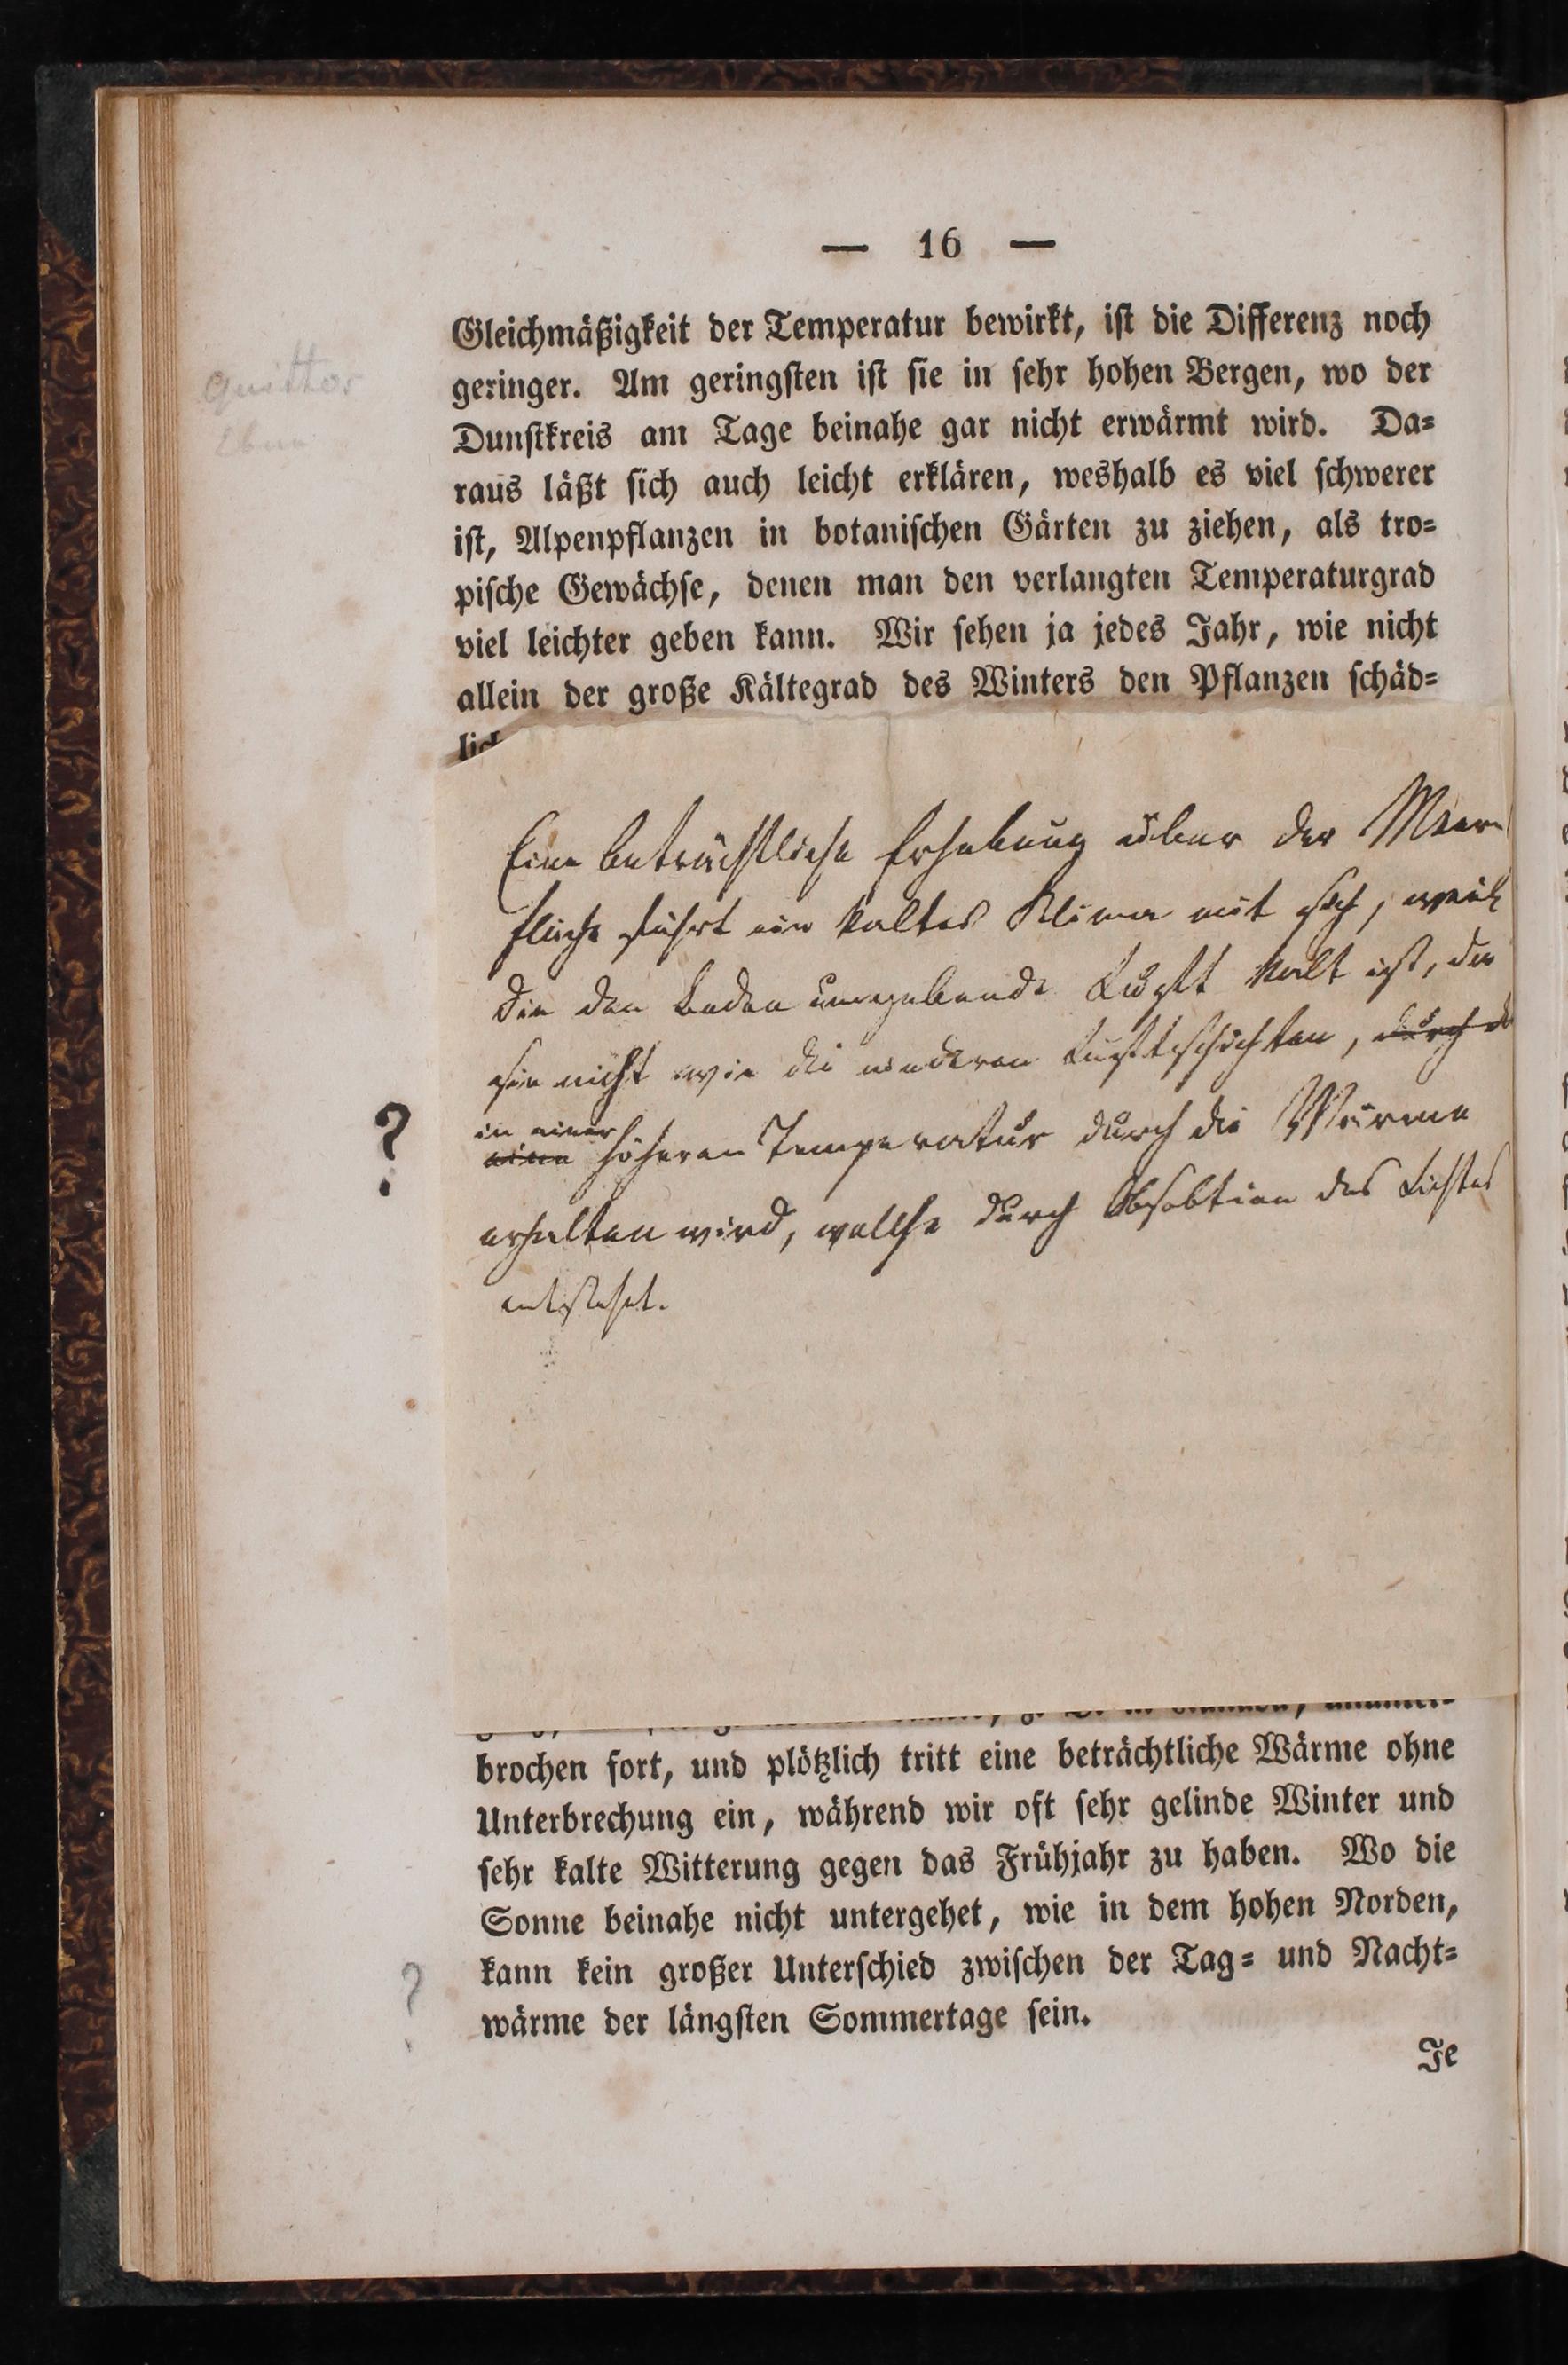 — 16 —
Gleichmäßigkeit der Temperatur bewirkt, ist die Differenz noch
geringer. Am geringsten ist sie in sehr hohen Bergen, wo der
Dunstkreis am Tage beinahe gar nicht erwärmt wird. Da=
raus läßt sich auch leicht erklären, weshalb es viel schwerer
ist, Alpenpflanzen in botanischen Gärten zu ziehen, als tro=
pische Gewächse, denen man den verlangten Temperaturgrad
viel leichter geben kann. Wir sehen ja jedes Jahr, wie nicht
allein der große Kältegrad des Winters den Pflanzen schäd=
lich
Eine beträchtliche Erhebung über der Meeres
fläche führt ein kaltes Klima mit sich, weil
die den Boden umgebende Luft kalt ist, da
sie nicht wie die niederen Luftschichten, durch d
?
in einer
eine höheren Temperatur durch die Wärme
erhalten wird, welche durch Absobtion des Lichtes
entsteht.
brochen fort, und plötzlich tritt eine beträchtliche Wärme ohne
Unterbrechung ein, während wir oft sehr gelinde Winter und
sehr kalte Witterung gegen das Frühjahr zu haben. Wo die
Sonne beinahe nicht untergehet, wie in dem hohen Norden,
kann kein großer Unterschied zwischen der Tag= und Nacht=
?
wärme der längsten Sommertage sein.
Je